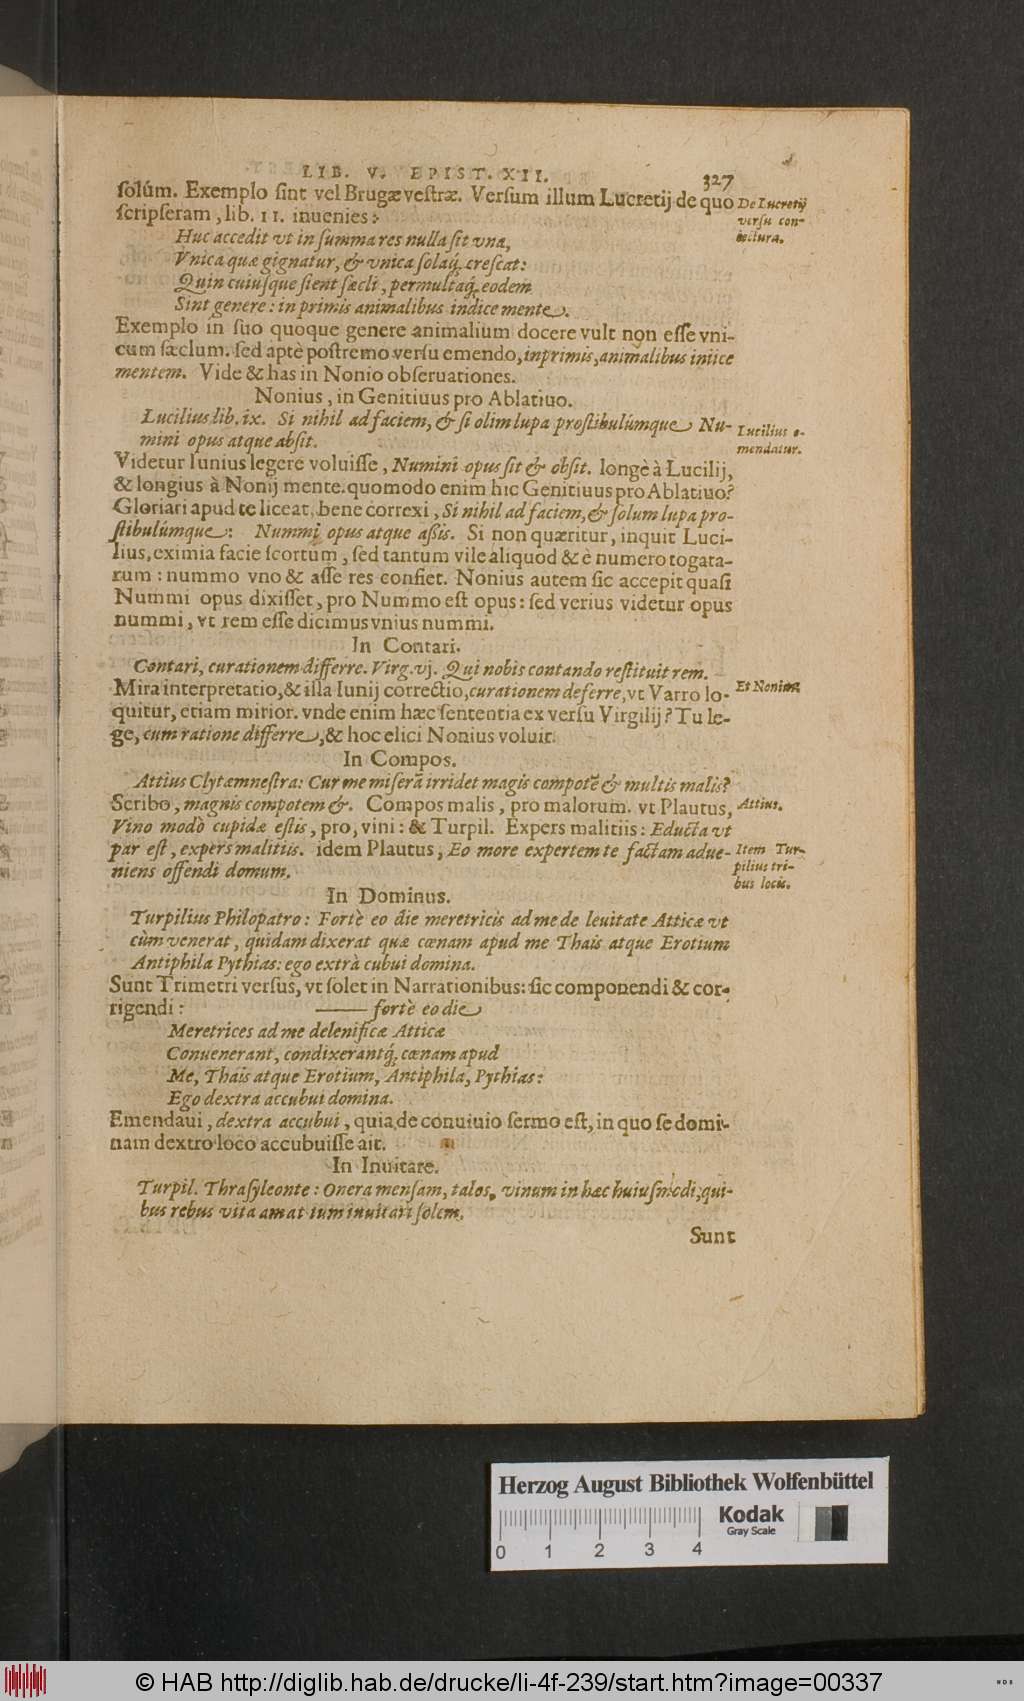 LIB. V. EPIST. XII. 327
solúm. Exemplo sint vel Brugæ vestræ. Versum illum Lucretij de quo
scripseram, lib. 11. inuenies:
De Lucretij
versu con-
iectura.
Huc accedit vt in summa res nulla sit vna,
Vnica quæ gignatur, & vnica solaq́; crescat:
Quin cuiusque sient sæcli, permultaq́; eodem
Sint genere: in primis animalibus indice mente.
Exemplo in suo quoque genere animalium docere vult non esse vni-
cum sæclum. sed aptè postremo versu emendo, inprimis, animalibus iniice
mentem. Vide & has in Nonio obseruationes.
Nonius, in Genitiuus pro Ablatiuo.
Lucilius lib. ix. Si nihil ad faciem, & si olim lupa prostibulúmque Nu-
mini opus atque absit.
Lucilius e-
mendatur.
Videtur Iunius legere voluisse, Numini opus sit & obsit. longè à Lucilij,
& longius à Nonij mente. quomodo enim hic Genitiuus pro Ablatiuo?
Gloriari apud te liceat, bene correxi, Si nihil ad faciem, & solum lupa pro-
stibulúmque: Nummi opus atque assis. Si non quæritur, inquit Luci-
lius, eximia facie scortum, sed tantum vile aliquod & è numero togata-
rum: nummo vno & asse res confiet. Nonius autem sic accepit quasi
Nummi opus dixisset, pro Nummo est opus: sed verius videtur opus
nummi, vt rem esse dicimus vnius nummi.
In Contari.
Contari, curationem differre. Virg. vj. Qui nobis contando restituit rem.
Mira interpretatio, & illa Iunij correctio, curationem deferre, vt Varro lo-
Et Nonius
quitur, etiam mirior. vnde enim hæc sententia ex versu Virgilij? Tu le-
ge, cum ratione differre, & hoc elici Nonius voluit.
In Compos.
Attius Clytæmnestra: Cur me miserā irridet magis compotē & multis malis?
Scribo, magnis compotem &. Compos malis, pro malorum. vt Plautus,
Attius.
Vino modò cupidæ estis, pro, vini: & Turpil. Expers malitiis: Educta vt
par est, expers malitiis. idem Plautus, Eo more expertem te factam adue-
niens offendi domum.
Item Tur-
pilius tri-
bus locis.
In Dominus.
Turpilius Philopatro: Fortè eo die meretricis ad me de leuitate Atticæ vt
cùm venerat, quidam dixerat quæ cœnam apud me Thais atque Erotium
Antiphila Pythias: ego extrà cubui domina.
Sunt Trimetri versus, vt solet in Narrationibus: sic componendi & cor-
rigendi: —— fortè eo die
Meretrices ad me delenificæ Atticæ
Conuenerant, condixerantq́; cœnam apud
Me, Thais atque Erotium, Antiphila, Pythias:
Ego dextra accubui domina.
Emendaui, dextra accubui, quia de conuiuio sermo est, in quo se domi-
nam dextro loco accubuisse ait.
In Inuitare.
Turpil. Thrasyleonte: Onera mensam, talos, vinum in hæc huiusmodi, qui-
bus rebus vita amat ium inuitari solem.
Sunt
Herzog August Bibliothek Wolfenbüttel
Kodak
Gray Scale
0 1 2 3 4
© HAB http://diglib.hab.de/drucke/li-4f-239/start.htm?image=00337